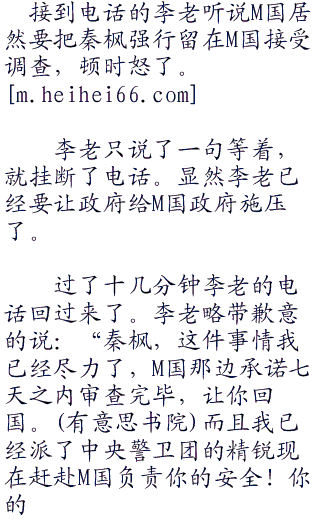 接到电话的李老听说M国居
然要把秦枫强行留在M国接受
调查，顿时怒了。
[m.heihei66.com]
李老只说了一句等着，
就挂断了电话。显然李老已
经要让政府给M国政府施压
了。
过了十几分钟李老的电
话回过来了。李老略带歉意
的说：“秦枫，这件事情我
已经尽力了，M国那边承诺七
天之内审查完毕，让你回
国。(有意思书院)而且我已
经派了中央警卫团的精锐现
在赶赴M国负责你的安全！你
的